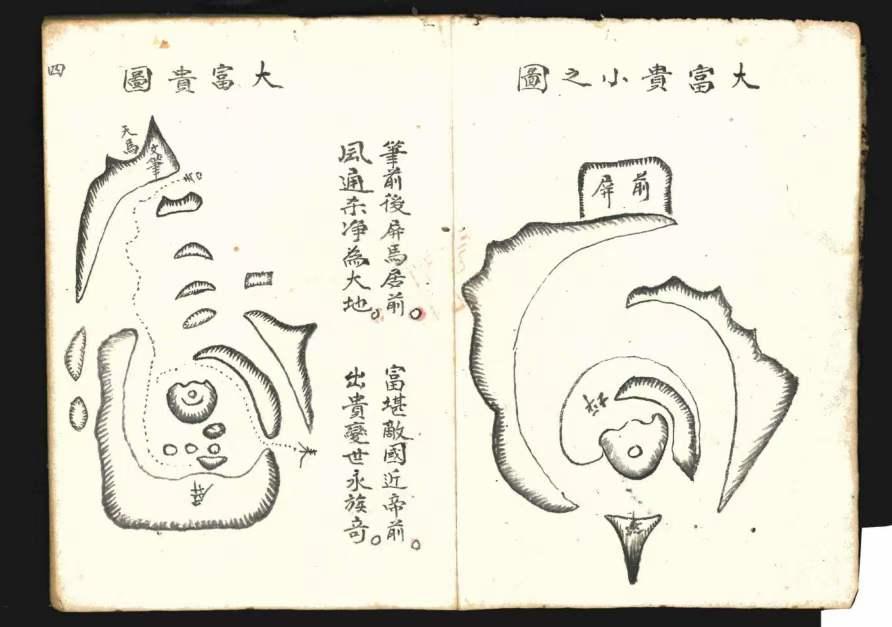 大富貴小之圖
前屏
筆前後屏馬居前。
風通杀净為大地。
富堪敵國近帝前。
出貴變世永族奇。
大富貴圖
四
天馬
文筆